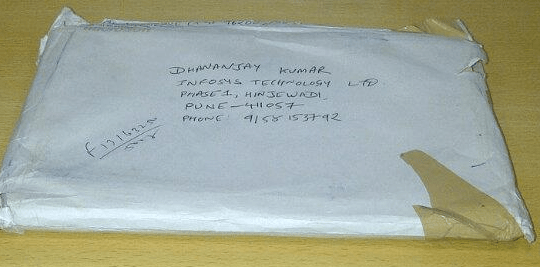 DHANANJAY KUMAR
INFOSYS TECHNOLOGY LTD
PHASE 1, HINJEWADI,
PUNE - 411057
PHONE: 9158153792